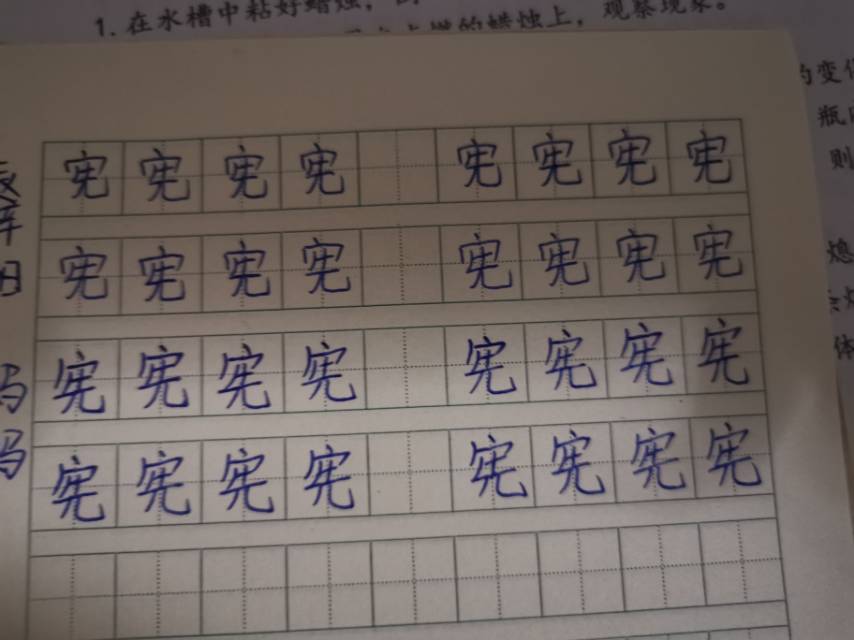 1. 在水槽中粘好蜡烛，
的蜡烛上，观察现象。
的变化
瓶
则
宪宪宪宪 宪宪宪宪
宪宪宪宪 宪宪宪宪
熄
宪宪宪宪 宪宪宪宪
体
宪宪宪宪 宪宪宪宪